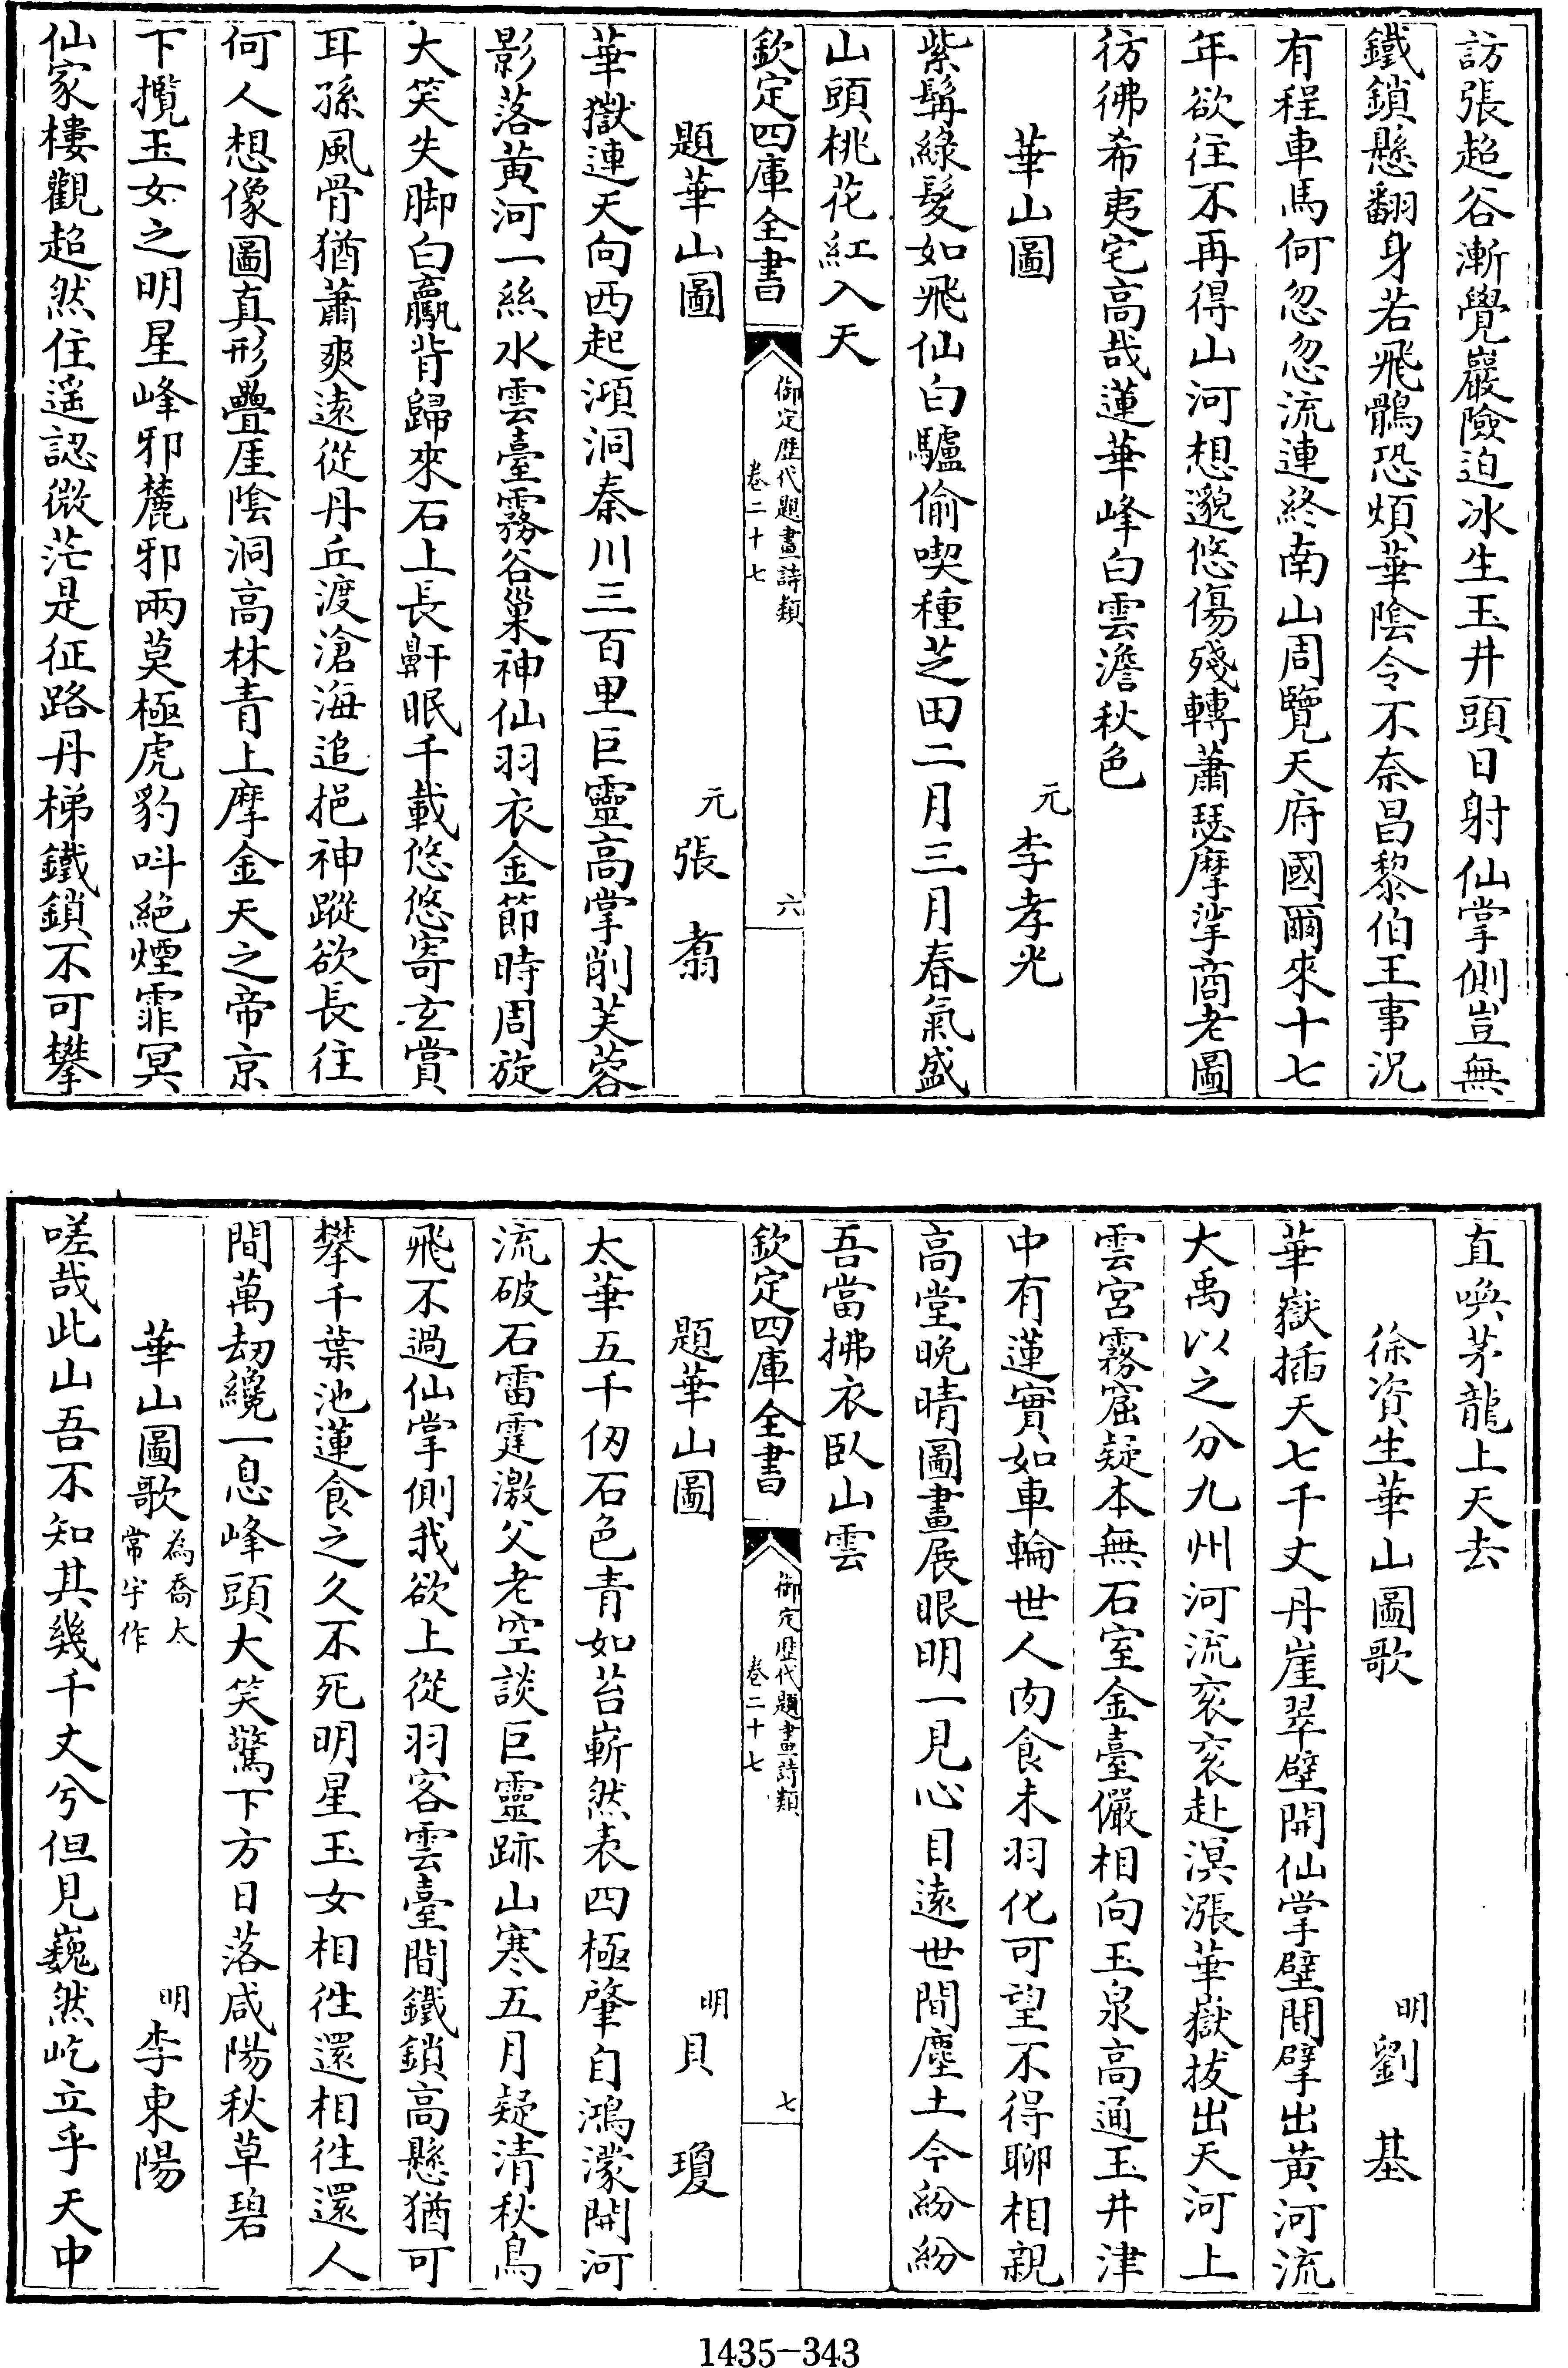 訪張超谷漸覺巖險迫冰生玉井頭日射仙掌側豈無
鐵鎖懸翻身若飛鶻恐煩華陰令不奈昌黎伯王事況
有程車馬何忽忽流連終南山周覽天府國爾來十七
年欲往不再得山河想邈悠傷殘轉蕭瑟摩挲商老圖
彷彿希夷宅高哉蓮華峰白雲澹秋色
華山圖
元 李孝光
紫髯綠髮如飛仙白驢偷喫種芝田二月三月春氣盛
山頭桃花紅入天
欽定四庫全書
御定歷代題畫詩類
卷二十七
六
題華山圖
元 張翥
華嶽連天向西起澒洞秦川三百里巨靈高掌削芙蓉
影落黃河一絲水雲臺霧谷巢神仙羽衣金節時周旋
大笑失脚白驘背歸來石上長鼾眠千載悠悠寄玄賞
耳孫風骨猶蕭爽遠從丹丘渡滄海追挹神蹤欲長往
何人想像圖真形疊厓陰洞高林青上摩金天之帝京
下攬玉女之明星峰邪麓邪兩莫極虎豹叫絕煙霏冥
仙家樓觀超然住遥認微茫是征路丹梯鐵鎖不可攀
直喚茅龍上天去
徐資生華山圖歌
明 劉基
華嶽插天七千丈丹崖翠壁開仙掌壁間擘出黃河流
大禹以之分九州河流衮衮赴溟漲華嶽拔出天河上
雲宮霧窟疑本無石室金臺儼相向玉泉高通玉井津
中有蓮實如車輪世人肉食未羽化可望不得聊相親
高堂晚晴圖畫展眼明一見心目遠世間塵土今紛紛
吾當拂衣臥山雲
欽定四庫全書
御定歷代題畫詩類
卷二十七
七
題華山圖
明 貝瓊
太華五千仞石色青如苔嶄然表四極肇自鴻濛開河
流破石雷霆激父老空談巨靈跡山寒五月疑清秋鳥
飛不過仙掌側我欲上從羽客雲臺間鐵鎖高懸猶可
攀千葉池蓮食之久不死明星玉女相徃還相徃還人
間萬刼纔一息峰頭大笑驚下方日落咸陽秋草碧
華山圖歌 為喬太常宇作
明 李東陽
嗟哉此山吾不知其幾千丈兮但見巍然屹立乎天中
1435-343